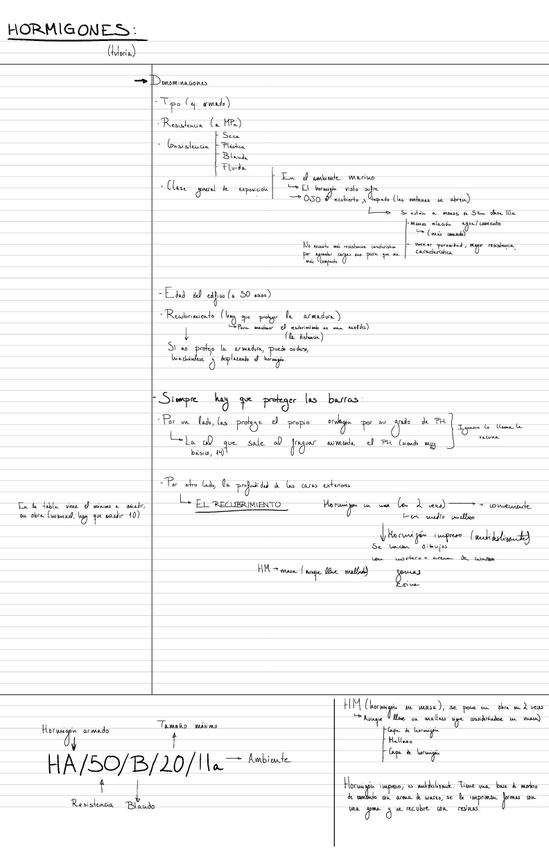 HORMIGONES:
(tutoría)
→ Denominaciones
- Tipo (ej: armado)
- Resistencia (a MPa)
- Consistencia
Seca
Plástica
Blanda
Fluida
- Clase general de exposición
En el ambiente marino
↳ El hormigón visto sufre
→ OJO si cubierto y tapado (las ventanas se abren)
↳ Si están a menos de 5km clase IIIa
- menos relación agua/cemento
↳ (más cemento)
- menor porosidad, mayor resistencia característica
No necesito más resistencia característica
por aguantar cargas sino para que sea
más compacto
- Edad del edificio (a 50 años)
- Recubrimiento (hay que proteger la armadura)
↳ Para mantener el recubrimiento se usan
(la distancia)
Si no protejo la armadura, puede oxidarse,
hinchándose y desplazando el hormigón.
- Siempre hay que proteger las barras:
- Por un lado, las protege el propio por su grado de PH
↳ La cal que sale al fraguar aumenta el PH (siendo muy
básico, 14)
Ignacio lo llama la
vacuna
- Por otro lado, la profundidad de las caras exteriores.
↳ EL RECUBRIMIENTO
En la tabla viene el mínimo a añadir,
en obra (normal, hay que añadir 10)
Hormigón en masa (en 2 veces) → + conveniente
↳ en medio mallazo
↓ Hormigón impreso (antideslizante)
Se hacen dibujos
con mortero + arena de cuarzo
gomas
Resina
HM → masa (aunque lleve mallazo)
Hormigón armado
Tamaño máximo
HA/50/B/20/IIa → Ambiente
Resistencia
Blando
HM (hormigón en masa), se pone en obra en 2 veces
↳ Aunque lleve un mallazo sigue considerándose en masa)
Capa de hormigón
Mallazo
Capa de hormigón
Hormigón impreso, es antideslizante. Tiene una base de mortero
de cemento con arena de cuarzo, se le imprimen formas con
una goma y se recubre con resinas.